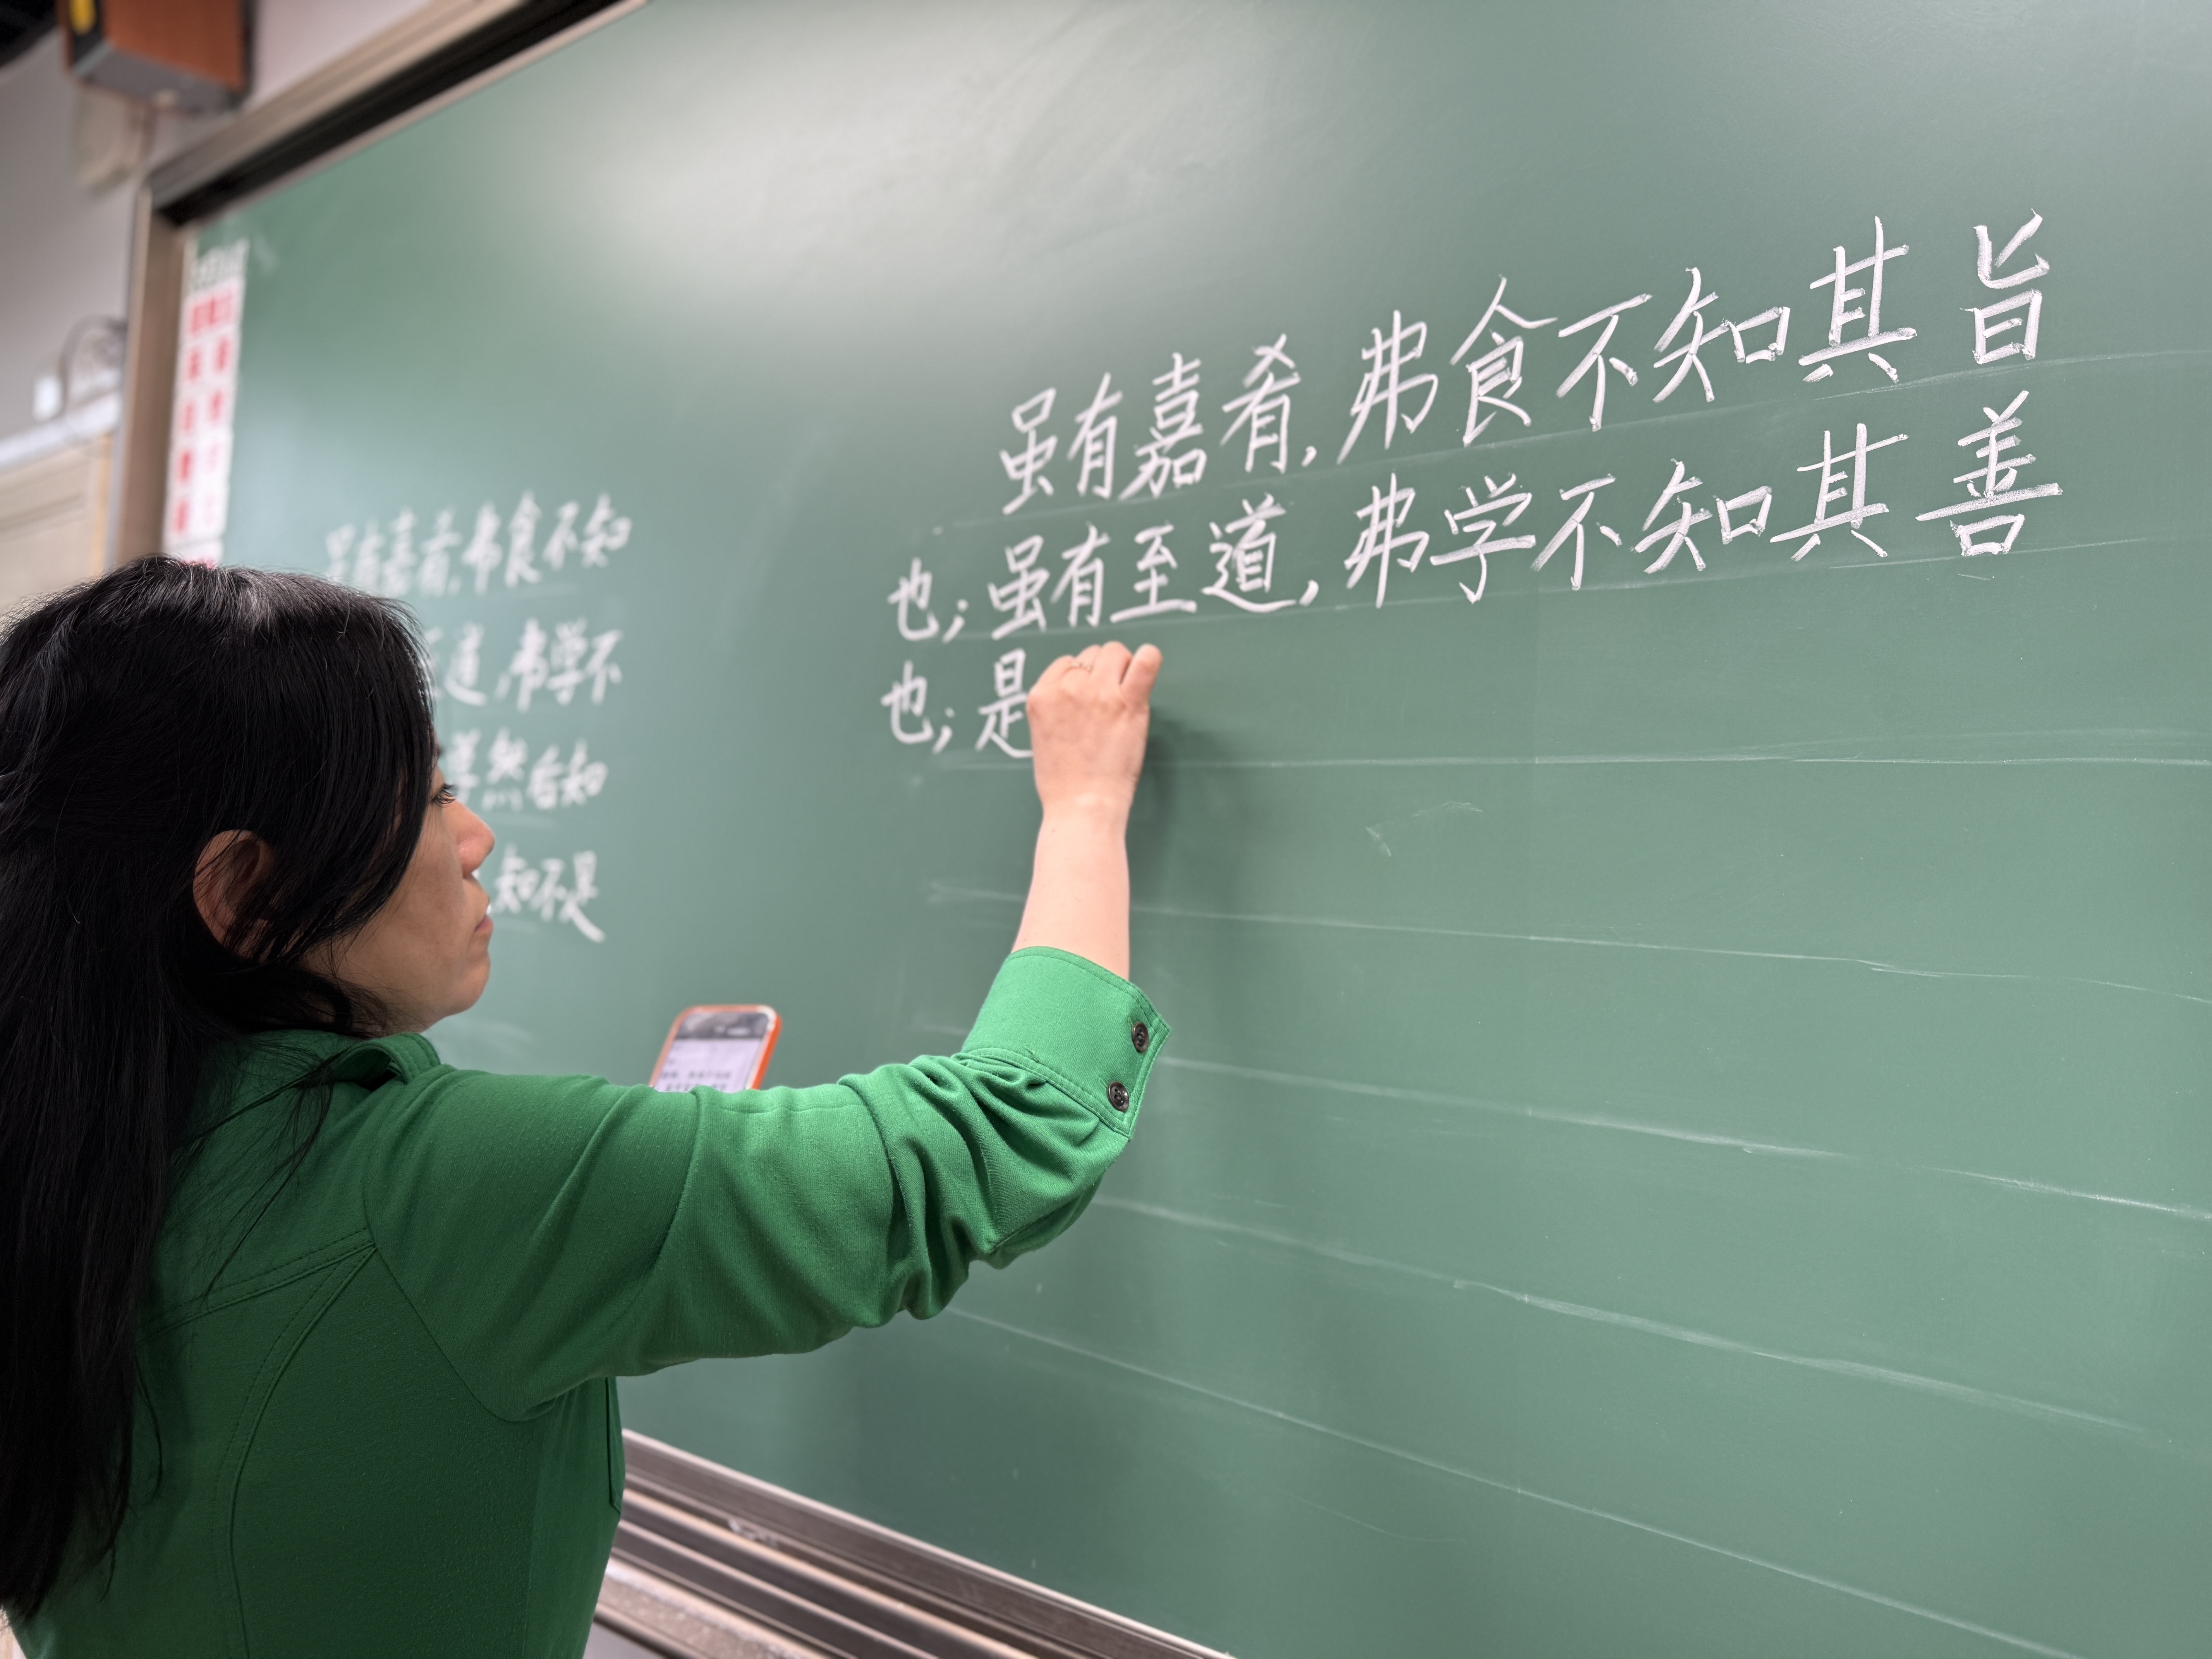 嘉肴,弗食不知
道,弗学不
然后知
知不足
虽有嘉肴,弗食不知其旨
也;虽有至道,弗学不知其善
也;是